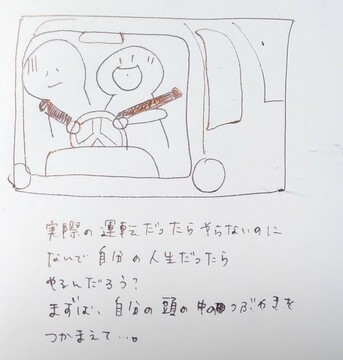 実際の運転だったらやらないのに
ないで自分の人生だったら
やるんだろう?
まずは、自分の頭の中のつぶやきを
つかまえて...。